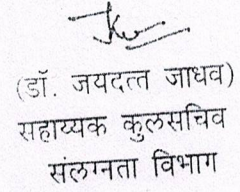 (डॉ. जयदत्त जाधव)
सहाय्यक कुलसचिव
संलग्नता विभाग